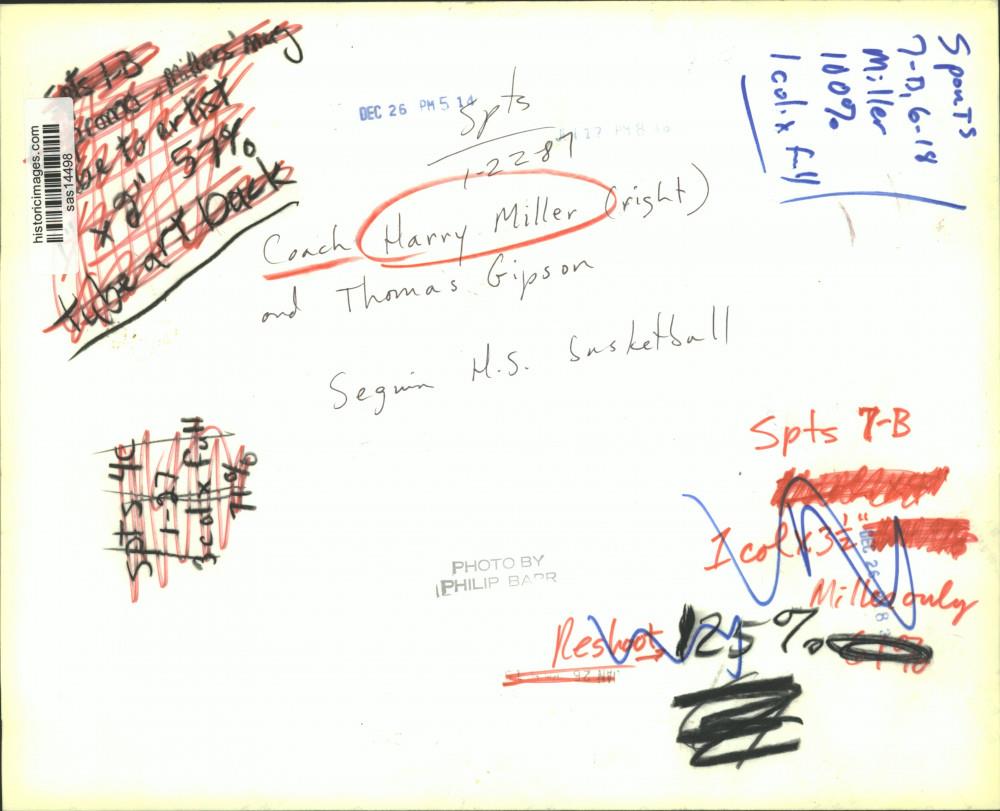 Spts 1-B
Millers mug
to artist
x 2" 57%
tube art back
historicimages.com
sas14498
DEC 26 PM 5 14
Spts
1-22-87
Sports
7-D, 6-18
Miller
100%
1 col x full
Coach Harry Miller (right)
and Thomas Gipson
Seguin H.S. basketball
Spts 4C
1-27
3 col x full
71%
Spts 7-B
1 col x 3 1/2"
Miller only
Reshoot
125%
PHOTO BY
PHILIP BARR
DEC 26
JAN 26